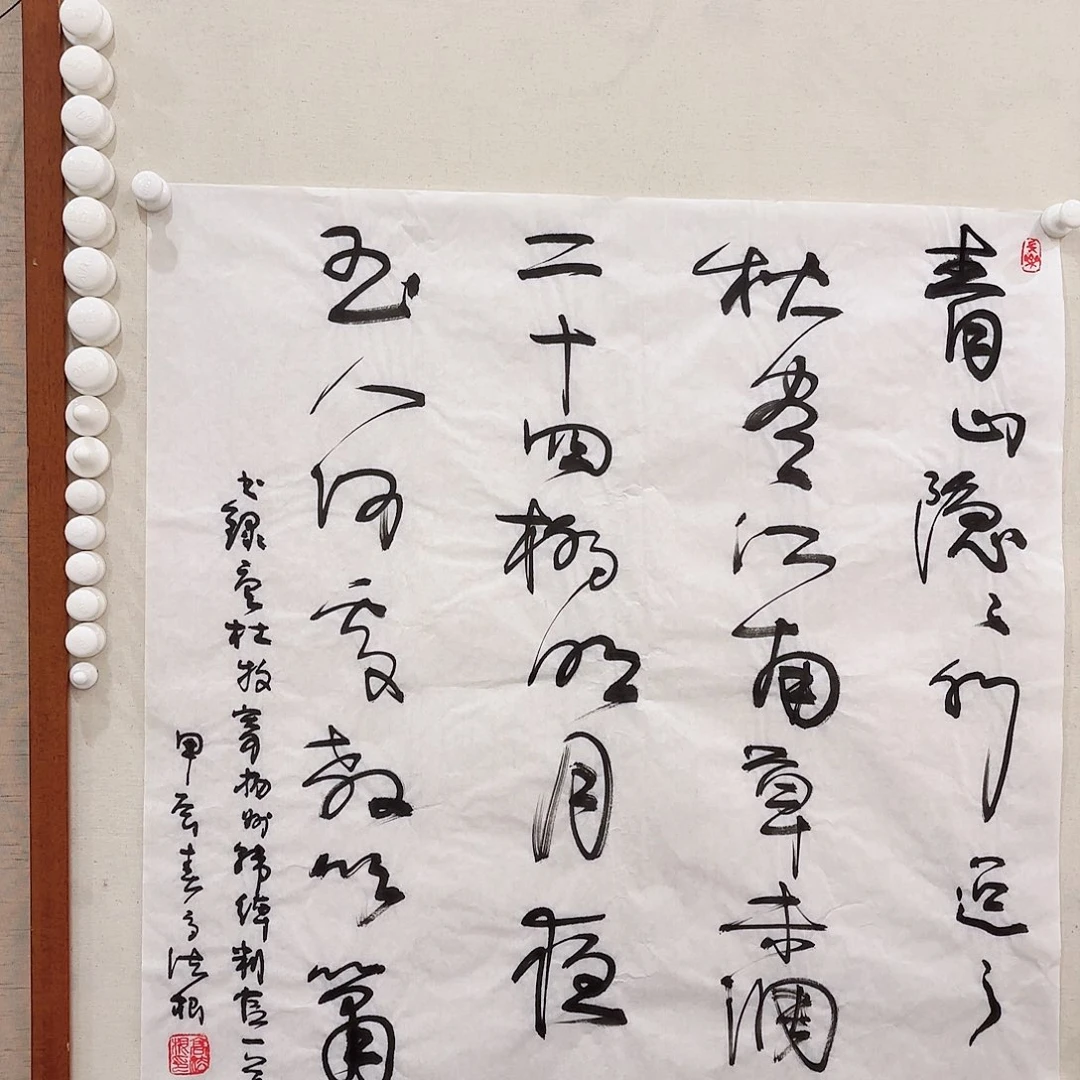 长乐
青山隐々水迢々
秋尽江南草未凋
二十四桥明月夜
玉人何处教吹箫
书录唐杜牧寄扬州韩绰判官一
甲辰春高法根